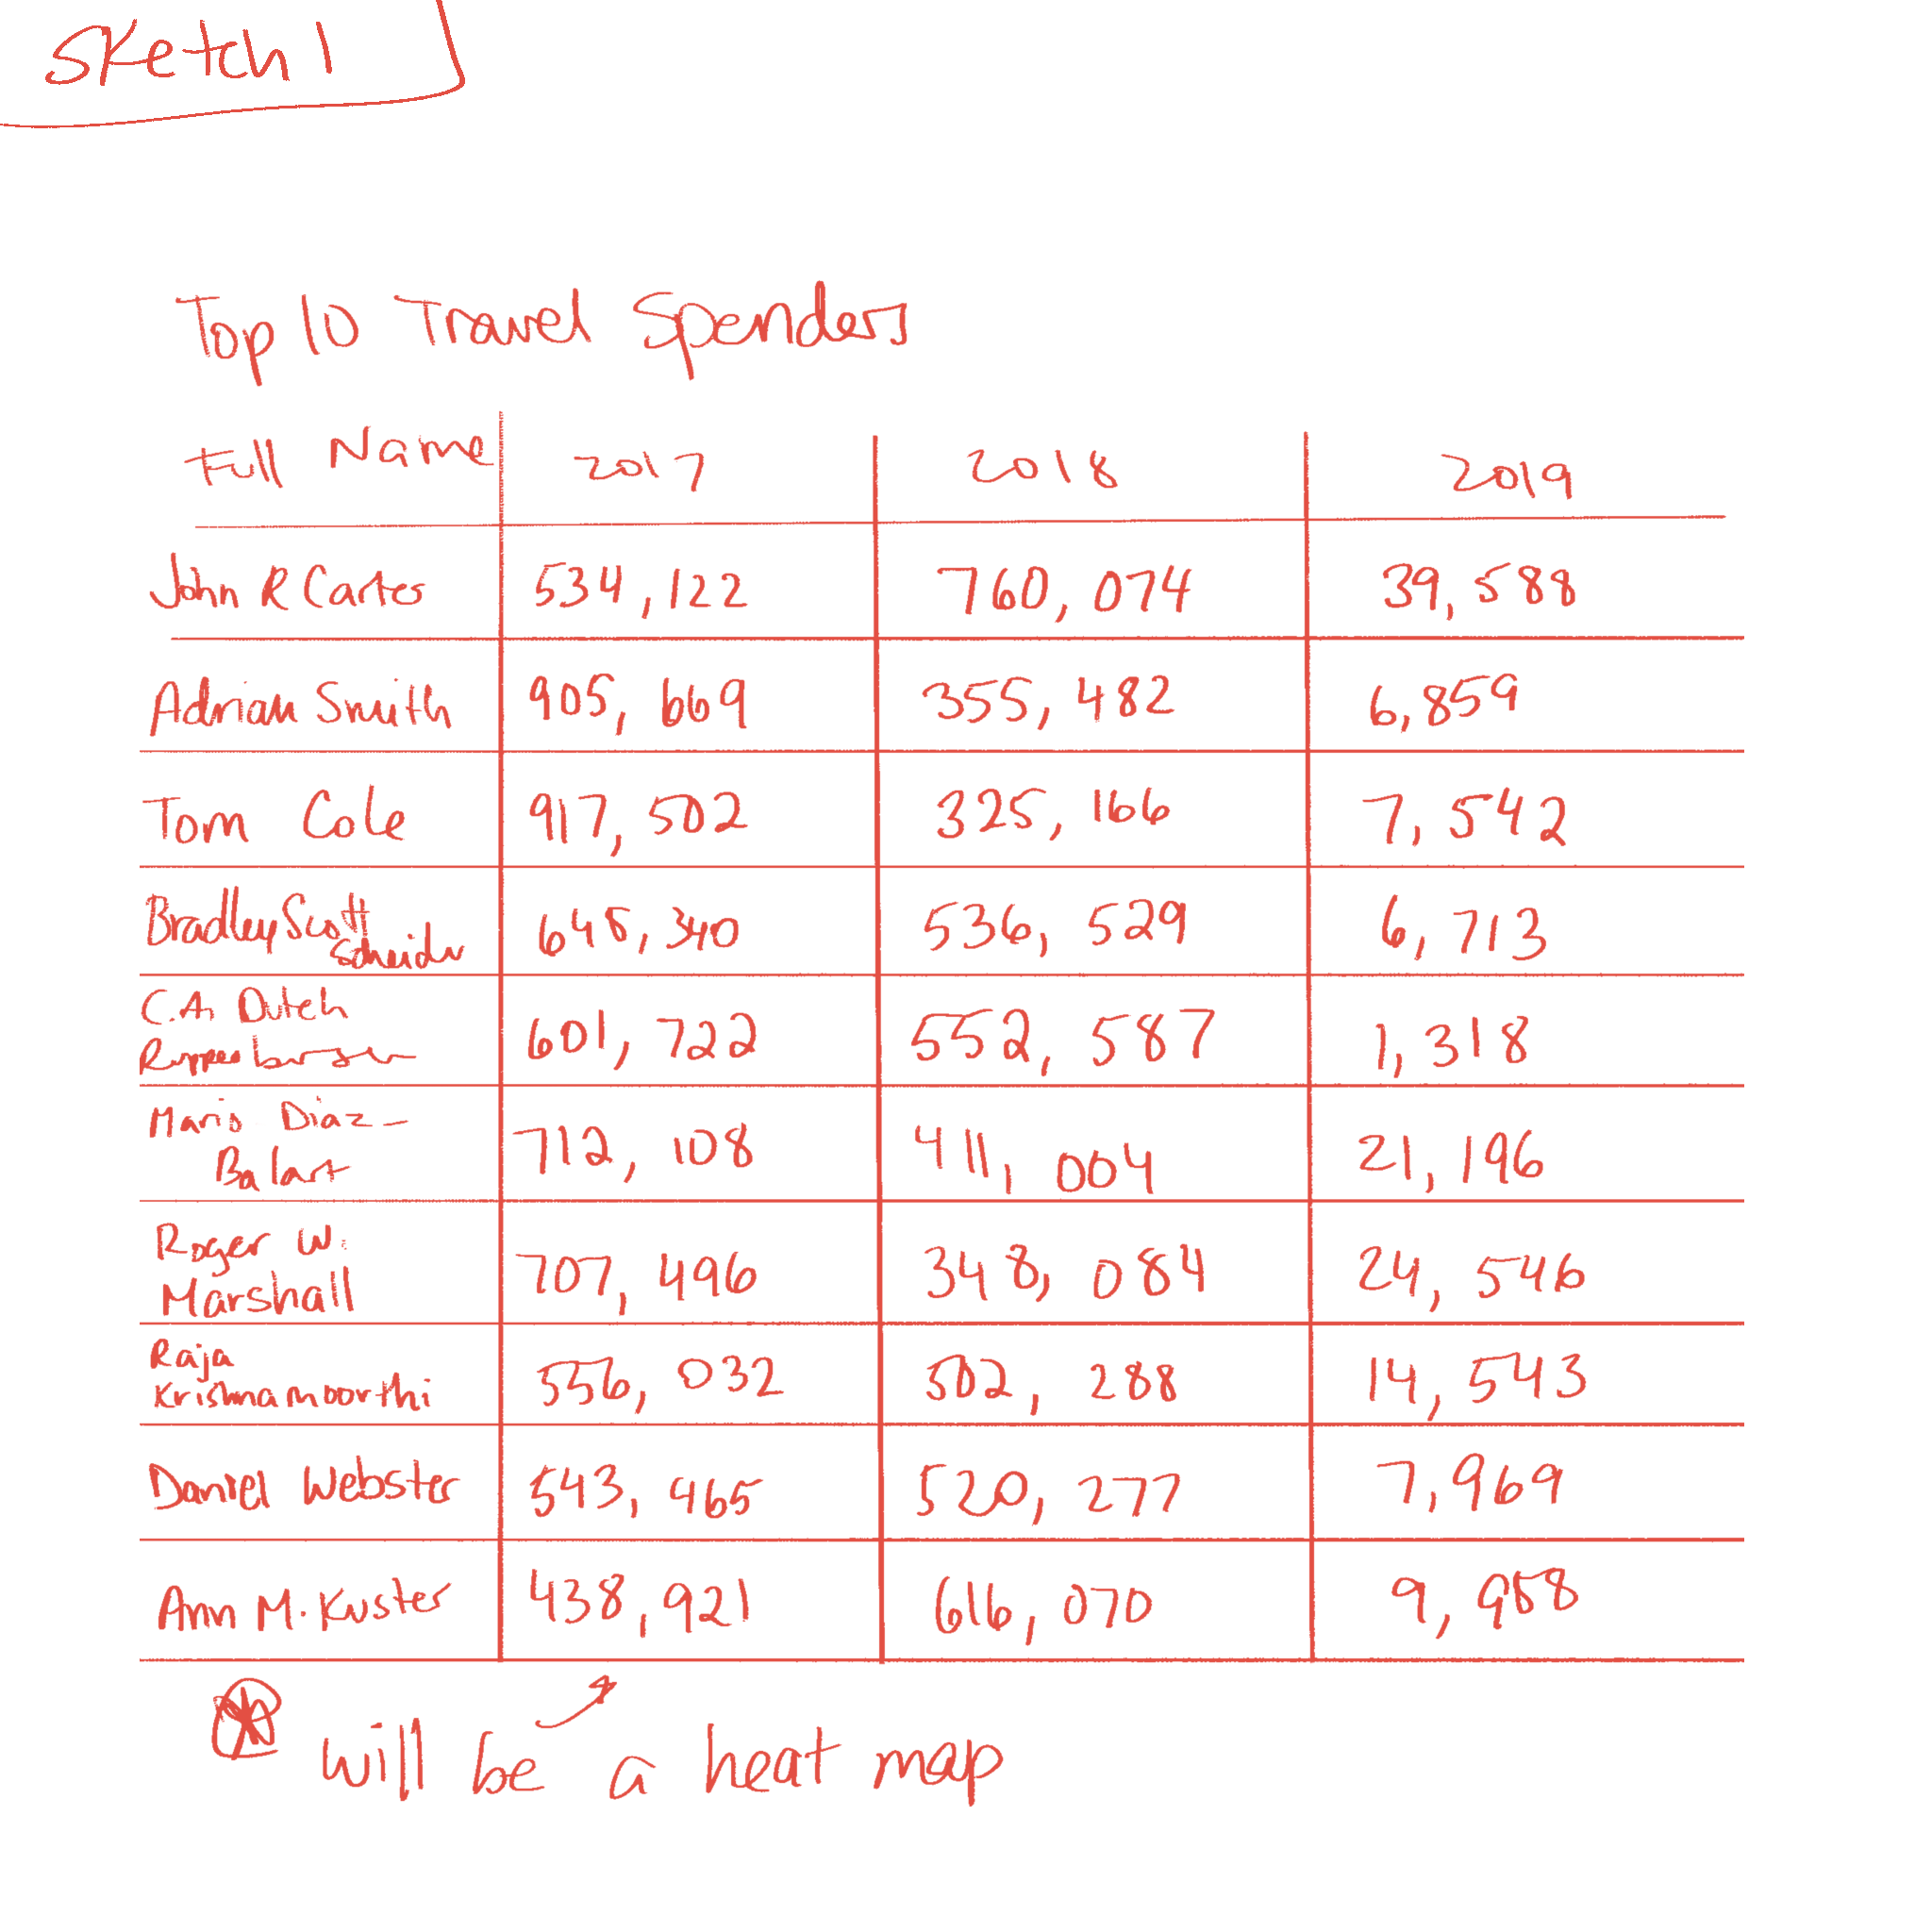 Sketch 1
Top 10 Travel Spenders
Full Name 2017 2018 2019
John R Carter 534,122 760,074 39,588
Adrian Smith 905,669 355,482 6,859
Tom Cole 917,502 325,166 7,542
Bradley Scott
Schneider 645,340 536,529 6,713
C.A. Dutch
Ruppersberger 601,722 552,587 1,318
Mario Diaz-
Balart 712,108 411,004 21,196
Roger W.
Marshall 707,496 348,084 24,546
Raja
Krishnamoorthi 556,032 502,288 14,543
Daniel Webster 543,465 520,277 7,969
Ann M. Kuster 438,921 616,070 9,958
will be a heat map